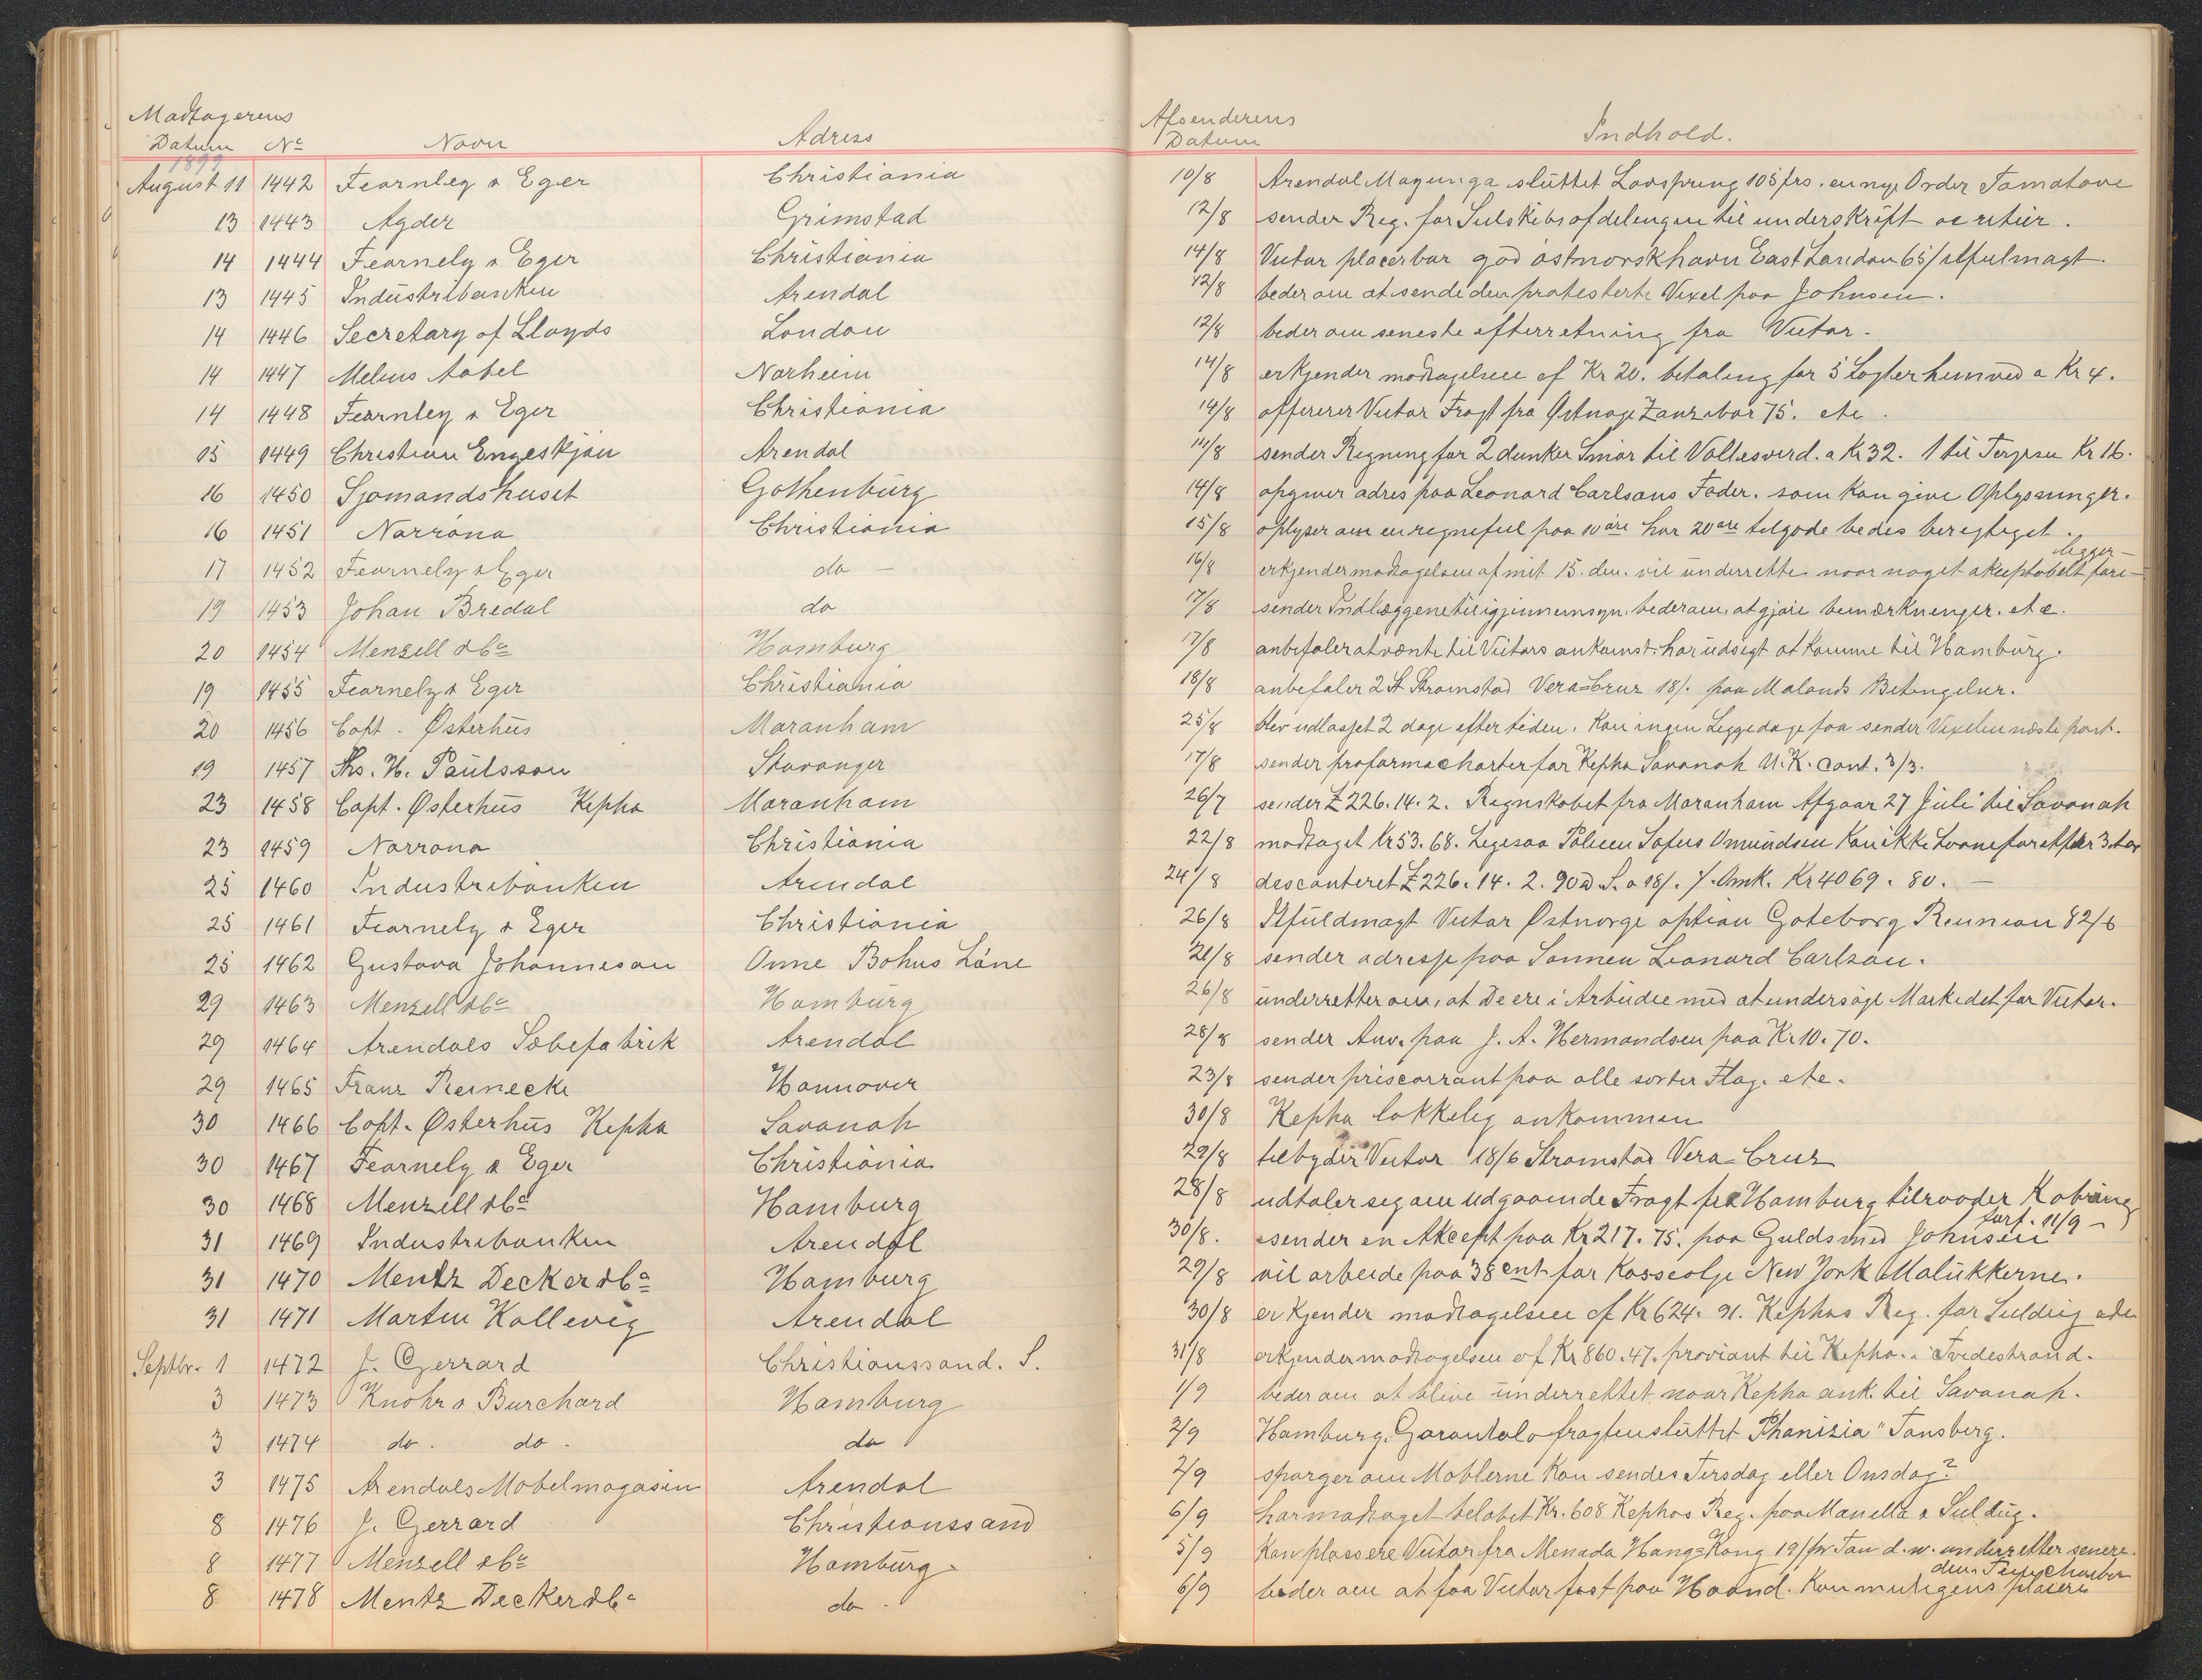 Modtagerens
Datum No Navn Adress
1899
August 11 1442 Fearnley & Eger Christiania
13 1443 Agder Grimstad
14 1444 Fearnely & Eger Christiania
13 1445 Industribanken Arendal
14 1446 Secretary of Lloyds London
14 1447 Melius Aabel Narheim
14 1448 Fearnley & Eger Christiania
15 1449 Christian Engeskjön Arendal
16 1450 Sjomandshuset Gothenburg
16 1451 Norröna Christiania
17 1452 Fearnely & Eger do —
19 1453 Johan Bredal do
20 1454 Menzell & Co Hamburg
19 1455 Fearnely & Eger Christiania
20 1456 Capt. Østerhus Maranham
19 1457 Ths. H. Paulsson Stavanger
23 1458 Capt. Østerhus Kepha Maranham
23 1459 Norrona Christiania
25 1460 Industribanken Arendal
25 1461 Fearnely & Eger Christiania
25 1462 Gustava Johannesou Onne Bohus Läne
29 1463 Menzell & Co Hamburg
29 1464 Arendals Sæbefabrik Arendal
29 1465 Franz Reinecke Hannover
30 1466 Capt. Østerhus Kepha Savanah
30 1467 Fearnely & Eger Christiania
30 1468 Menzell & Co Hamburg
31 1469 Industribanken Arendal
31 1470 Mentz Decker & Co Hamburg
31 1471 Martin Kallevig Arendal
Septbr. 1 1472 J. Gerrard Christianssand. S.
3 1473 Knohr & Burchard Hamburg
3 1474 do. do. do
3 1475 Arendals Mobelmagasin Arendal
8 1476 J. Gerrard Christianssand
8 1477 Menzell & Co Hamburg.
8 1478 Mentz Decker & Co do.
Afsenderens
Datum Indhold.
10/8 Arendal Mayunga sluttet Lovspring 105 frs. en nye Order Tamatave
12/8 sender Reg. for Seilskibsafdelingen til underskrift
14/8 Viutar placerbar god östnorsk havn East London 65/
12/8 beder om at sende den protesterte Vexel paa Johnsen.
12/8 beder om seneste efterretning fra Viutar.
14/8 erkjender modtagelsen af Kr 20. betaling for 5 Logter hunved a Kr 4.
14/8 offererer Viutar Fragt fra Østnorge Zanzibar 75. etc.
14/8 sender Regning for 2 dunker Smör til Vallesverd. a Kr 32. 1 til Terjesen Kr 16.
14/8 opgiver adres paa Leonard Carlsons Fader. som kan give Oplysninger.
15/8 oplyser om en regnefeil paa 10 öre har 20 öre tilgode bedes beregtiget.
16/8 erkjender modtagelsen af mit 15. den. vil underrette naar noget akseptabelt fore-
ligger —
17/8 sender Indlæggene til igjennemsyn. beder om, at gjöre bemærkninger. etc.
17/8 anbefaler at vente til Viutars ankomst. har udsigt at komme til Hamburg.
18/8 anbefaler 2 St Stromstad Vera=Cruz 18/. paa Malands Betingelser.
25/8 blev udlosset 2 dage efter tiden. kan ingen Leggedage faa sender Vexelen næste post.
17/8 sender proforma charter for Kepha Savanah U.K. Cont. 3/3.
26/7 sender £ 226. 14. 2. Regnskabet fra Maranham Afgaar 27 Juli til Savanah
22/8 modtaget Kr 53. 68. Ligesaa Polisen Sofus Omundsen kan ikke
24/8 desconteret £ 226. 14. 2. 90 d S. a 18/. Kr 4069. 80. —
26/8 Ilfuldmagt Viutar Østnorge option Goteborg Reunion 82/6
21/8 sender adresse paa Sønnen Leonard Carlson.
26/8 underretter om, at De ere i Arbeide med at undersöge Markedet for Viutar.
28/8 sender Anv. paa J. A. Hermandsen paa Kr 10. 70.
23/8 sender priscorrant paa alle sorter Flag. etc.
30/8 Kepha lykkelig ankommen
29/8 tilbyder Viutar 18/6 Stromstad Vera=Cruz
28/8 udtaler seg om udgaaende Fragt fra Hamburg tilraader Kobring
30/8. sender en Akcept paa Kr 217. 75. paa Guldsmed Johnsen forf. 11/9 —
29/8 vil arbeide paa 38 cent for Kasseolje New York Malukkerne.
30/8 erkjender modtagelsen af Kr 624. 91. Kephas Reg. for Seildug etc
31/8 erkjender modtagelsen af Kr 860. 47. proviant til Kepha. i Tvedestrand.
1/9 beder om at blive underrettet naar Kepha ank. til Savanah.
2/9 Hamburg. Garantalo fragten sluttet Phanizia" Tønsberg.
2/9 spørger om Moblerne kan sendes Tirsdag eller Onsdag?
6/9 har modtaget beløbet Kr. 608 Kephas Reg. paa Manella & Seildug.
5/9 Kan plassere Viutar fra Menada Hang=Kong 19/ pr Ton d.w. underretter senere.
6/9 beder om at faa Viutar fast paa Haand. Kan muligens placere
den Timecharter